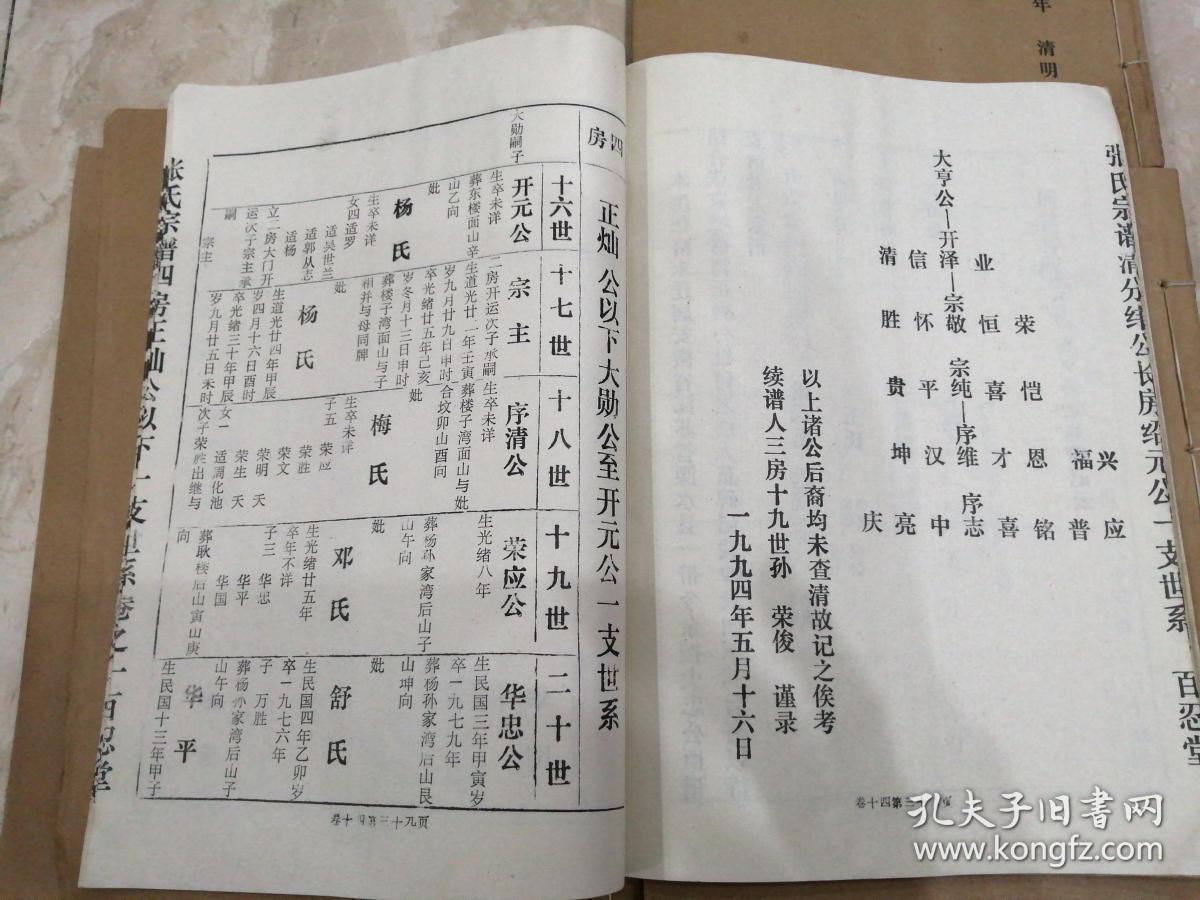 年 清明
张氏宗谱清分纬公长房绍元公一支世系 百忍堂
大亨公—开泽—宗敬 宗纯—序维 序志
业 荣 恺 兴 应
恒 喜 恩 福 普
信 怀 平 才 铭
清 胜 贵 汉 喜
坤 中
亮
庆
以上诸公后裔均未查清故记之俟考
续谱人三房十九世孙 荣俊 谨录
一九九四年五月十六日
卷十四第三
四房 正灿公以下大勋公至开元公一支世系
十六世
十七世
十八世
十九世
二十世
大勋嗣子
开元公
生卒未详
葬东楼面山辛
山乙向
妣
杨氏
生卒未详
女四适罗
适吴世兰
适郭从志
适杨
立二房大门开
运次子宗主承
嗣
宗主
宗主
二房开运次子承嗣
生道光廿一年壬寅
岁九月廿九日申时
卒光绪廿五年己亥
岁冬月十三日申时
葬楼子湾面山与子
相并与母同牌
妣
杨氏
生道光廿四年甲辰
岁四月十六日酉时
卒光绪三十年甲辰
岁九月廿五日未时
序清公
生卒未详
葬楼子湾面山与妣
合坟卯山酉向
妣
梅氏
生卒未详
子五 荣应
荣胜
荣文
荣明 夭
荣生 夭
女一 适周化池
次子荣胜出继与
荣应公
生光绪八年
葬杨孙家湾后山子
山午向
妣
邓氏
生光绪廿五年
卒年不详
子三 华忠
华平
华国
葬耿楼后山寅山庚
向
华忠公
生民国三年甲寅岁
卒一九七九年
葬杨孙家湾后山艮
山坤向
妣
舒氏
生民国四年乙卯岁
卒一九七六年
子 万胜
葬杨孙家湾后山子
山午向
华平
生民国十三年甲子
张氏宗谱四房正灿公以下一支世系卷之十四忍堂
卷十四第三十九页
孔夫子旧书网
www.kongfz.com